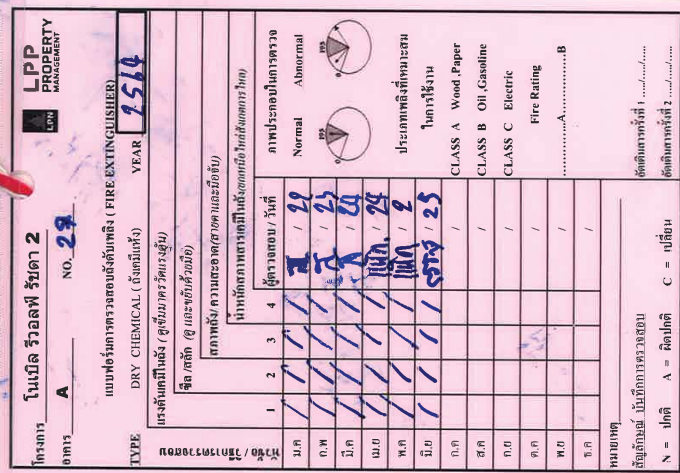 โครงการ โนเบิล รีวอลฟ์ รัชดา 2
LPN LPP
PROPERTY
MANAGEMENT
อาคาร A NO. 27
แบบฟอร์มการตรวจสอบถังดับเพลิง ( FIRE EXTINGUISHER)
TYPE DRY CHEMICAL ( ถังเคมีแห้ง) YEAR 2564
หัวข้อ / วิธีการตรวจสอบ
แรงดันเคมีในถัง ( ดูเข็มมาตรวัดแรงดัน)
ซีล /สลัก (ดู และขยับด้วยมือ)
สภาพถัง/ ความสะอาด(สายตาและมือจับ)
น้ำหนักสภาพสารเคมีในถัง(ยกหรือใหญ่สังเกตการไหล)
1 2 3 4 ผู้ตรวจสอบ / วันที่
ม.ค / / / / / 29
ก.พ / / / / / 25
มี.ค / / / / / 24
เม.ย / / / / / 24
พ.ค / / / / / 2
มิ.ย / / / / / 25
ก.ค /
ส.ค /
ก.ย /
ต.ค /
พ.ย /
ธ.ค /
ภาพประกอบในการตรวจ
Normal Abnormal
0 195 0 195
ประเภทเพลิงที่เหมาะสม
ในการใช้งาน
CLASS A Wood ,Paper
CLASS B Oil ,Gasoline
CLASS C Electric
Fire Rating
............A....................B
หมายเหตุ
สัญลักษณ์ บันทึกการตรวจสอบ
N = ปกติ A = ผิดปกติ C = เปลี่ยน
อัดเติมสารครั้งที่ 1 ....../....../......
อัดเติมสารครั้งที่ 2 ....../....../......